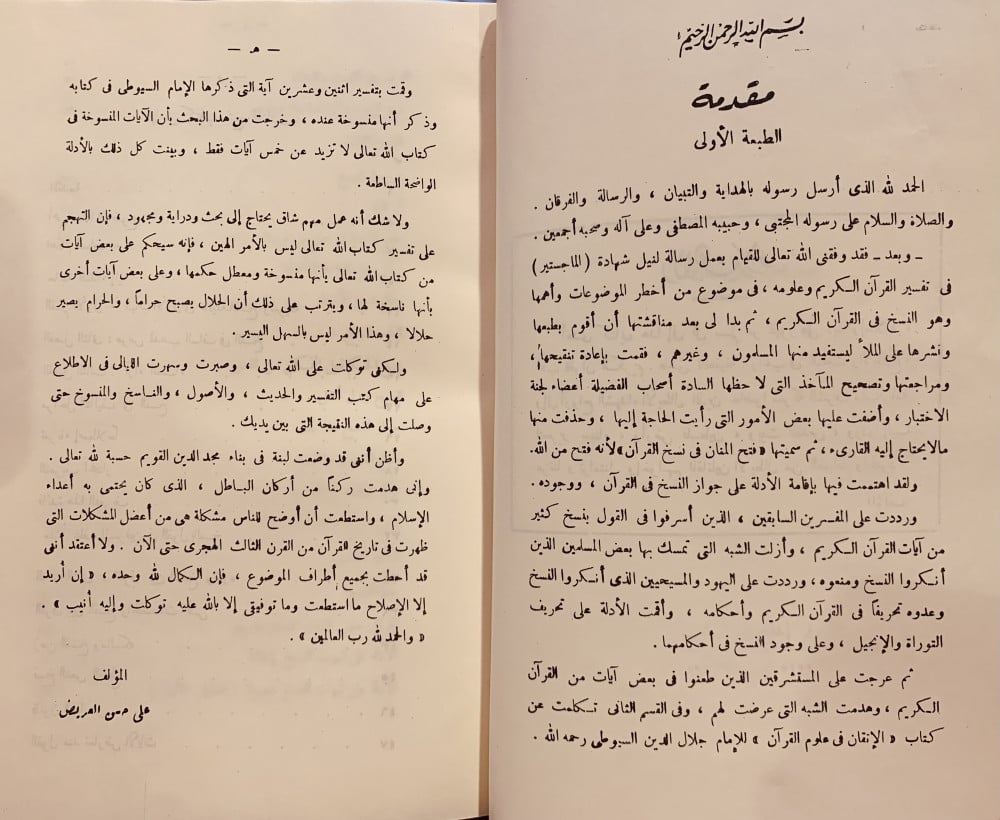 بسم الله الرحمن الرحيم
مقدمة
الطبعة الأولى
الحمد لله الذى أرسل رسوله بالهداية والتبيان ، والرسالة والفرقان .
والصلاة والسلام على رسوله المجتبى ، وحبيبه المصطفى وعلى آله وصحبه أجمعين .
ـ وبعد ـ فقد وفقنى الله تعالى للقيام بعمل رسالة لنيل شهادة (الماجستير)
فى تفسير القرآن الكريم وعلومه ، فى موضوع من أخطر الموضوعات وأهمها
وهو النسخ فى القرآن الكريم ، ثم بدا لى بعد مناقشتها أن أقوم بطبعها
ونشرها على الملأ ليستفيد منها المسلمون ، وغيرهم ، فقمت بإعادة تنقيحها ،
ومراجعتها وتصحيح المآخذ التى لاحظها السادة أصحاب الفضيلة أعضاء لجنة
الاختبار ، وأضفت عليها بعض الأمور التى رأيت الحاجة إليها ، وحذفت منها
مالايحتاج إليه القارىء ، ثم سميتها «فتح المنان فى نسخ القرآن» لأنه فتح من الله.
ولقد اهتممت فيها بإقامة الأدلة على جواز النسخ فى القرآن ، ووجوده .
ورددت على المفسرين السابقين ، الذين أسرفوا فى القول بنسخ كثير
من آيات القرآن الكريم ، وأزلت الشبه التى تمسك بها بعض المسلمين الذين
أنكروا النسخ ومنعوه ، ورددت على اليهود والمسيحيين الذى أنكروا النسخ
وعدوه تحريفاً فى القرآن الكريم وأحكامه ، وأقمت الأدلة على تحريف
التوراة والإنجيل ، وعلى وجود النسخ فى أحكامهما .
ثم عرجت على المستشرقين الذين طعنوا فى بعض آيات من القرآن
الكريم ، وهدمت الشبه التى عرضت لهم ، وفى القسم الثانى تكلمت عن
كتاب « الإتقان فى علوم القرآن » للإمام جلال الدين السيوطى رحمه الله .
— هـ —
وقمت بتفسير اثنين وعشرين آية التى ذكرها الإمام السيوطى فى كتابه
وذكر أنها منسوخة عنده ، وخرجت من هذا البحث بأن الآيات المنسوخة فى
كتاب الله تعالى لا تزيد عن خمس آيات فقط ، وبينت كل ذلك بالأدلة
الواضحة الساطعة .
ولا شك أنه عمل مهم شاق يحتاج إلى بحث ودراية ومجهود ، فإن التهجم
على تفسير كتاب الله تعالى ليس بالأمر الهين ، فإنه سيحكم على بعض آيات
من كتاب الله تعالى بأنها منسوخة ومعطل حكمها ، وعلى بعض آيات أخرى
بأنها ناسخة لها ، ويترتب على ذلك أن الحلال يصبح حراماً ، والحرام يصير
حلالا ، وهذا الأمر ليس بالسهل اليسير .
ولكنى توكلت على الله تعالى ، وصبرت وسهرت الليالى فى الاطلاع
على مهام كتب التفسير والحديث ، والأصول ، والناسخ والمنسوخ حتى
وصلت إلى هذه النتيجة التى بين يديك .
وأظن أننى قد وضعت لبنة فى بناء مجد الدين القويم حسبة لله تعالى .
وإنى هدمت ركناً من أركان الباطل ، الذى كان يحتمى به أعداء
الإسلام ، واستطعت أن أوضح للناس مشكلة هى من أعضل المشكلات التى
ظهرت فى تاريخ القرآن من القرن الثالث الهجرى حتى الآن . ولا أعتقد أننى
قد أحطت بجميع أطراف الموضوع ، فإن الكمال لله وحده ، « إن أريد
إلا الإصلاح ما استطعت وما توفيقى إلا بالله عليه توكلت وإليه أنيب » .
« والحمد لله رب العالمين » .
المؤلف
على حسن العريض